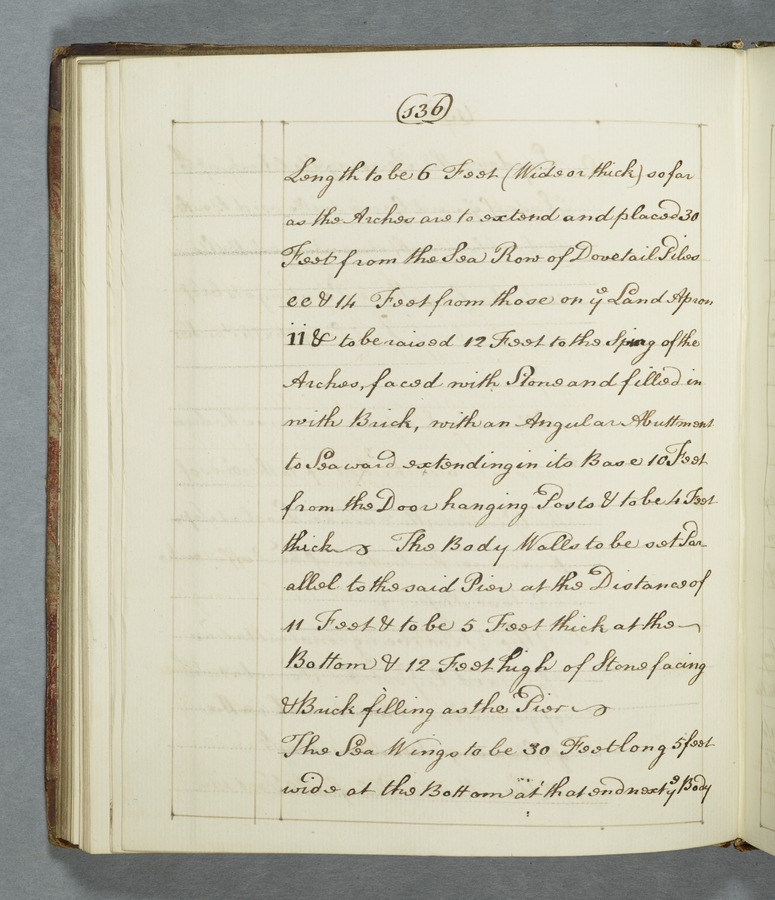 136
Length to be 6 Feet (Wide or thick) so far
as the Arches are to extend and placed 30
Feet from the Sea Row of Dovetail Piles
cc & 14 Feet from those on yᵉ Land Apron
ii & to be raised 12 Feet to the Spring of the
Arches, faced with Stone and filled in
with Brick, with an Angular Abuttment
to Seaward extending in its Base 10 Feet
from the Door hanging Posts & to be 4 Feet
thick The Body Walls to be set Par
allel to the said Pier at the Distance of
11 Feet & to be 5 Feet thick at the
Bottom & 12 Feet high of Stone facing
& Brick filling as the Pier
The Sea Wings to be 30 Feet long 5 feet
wide at the Bottom at that end next yᵉ Body